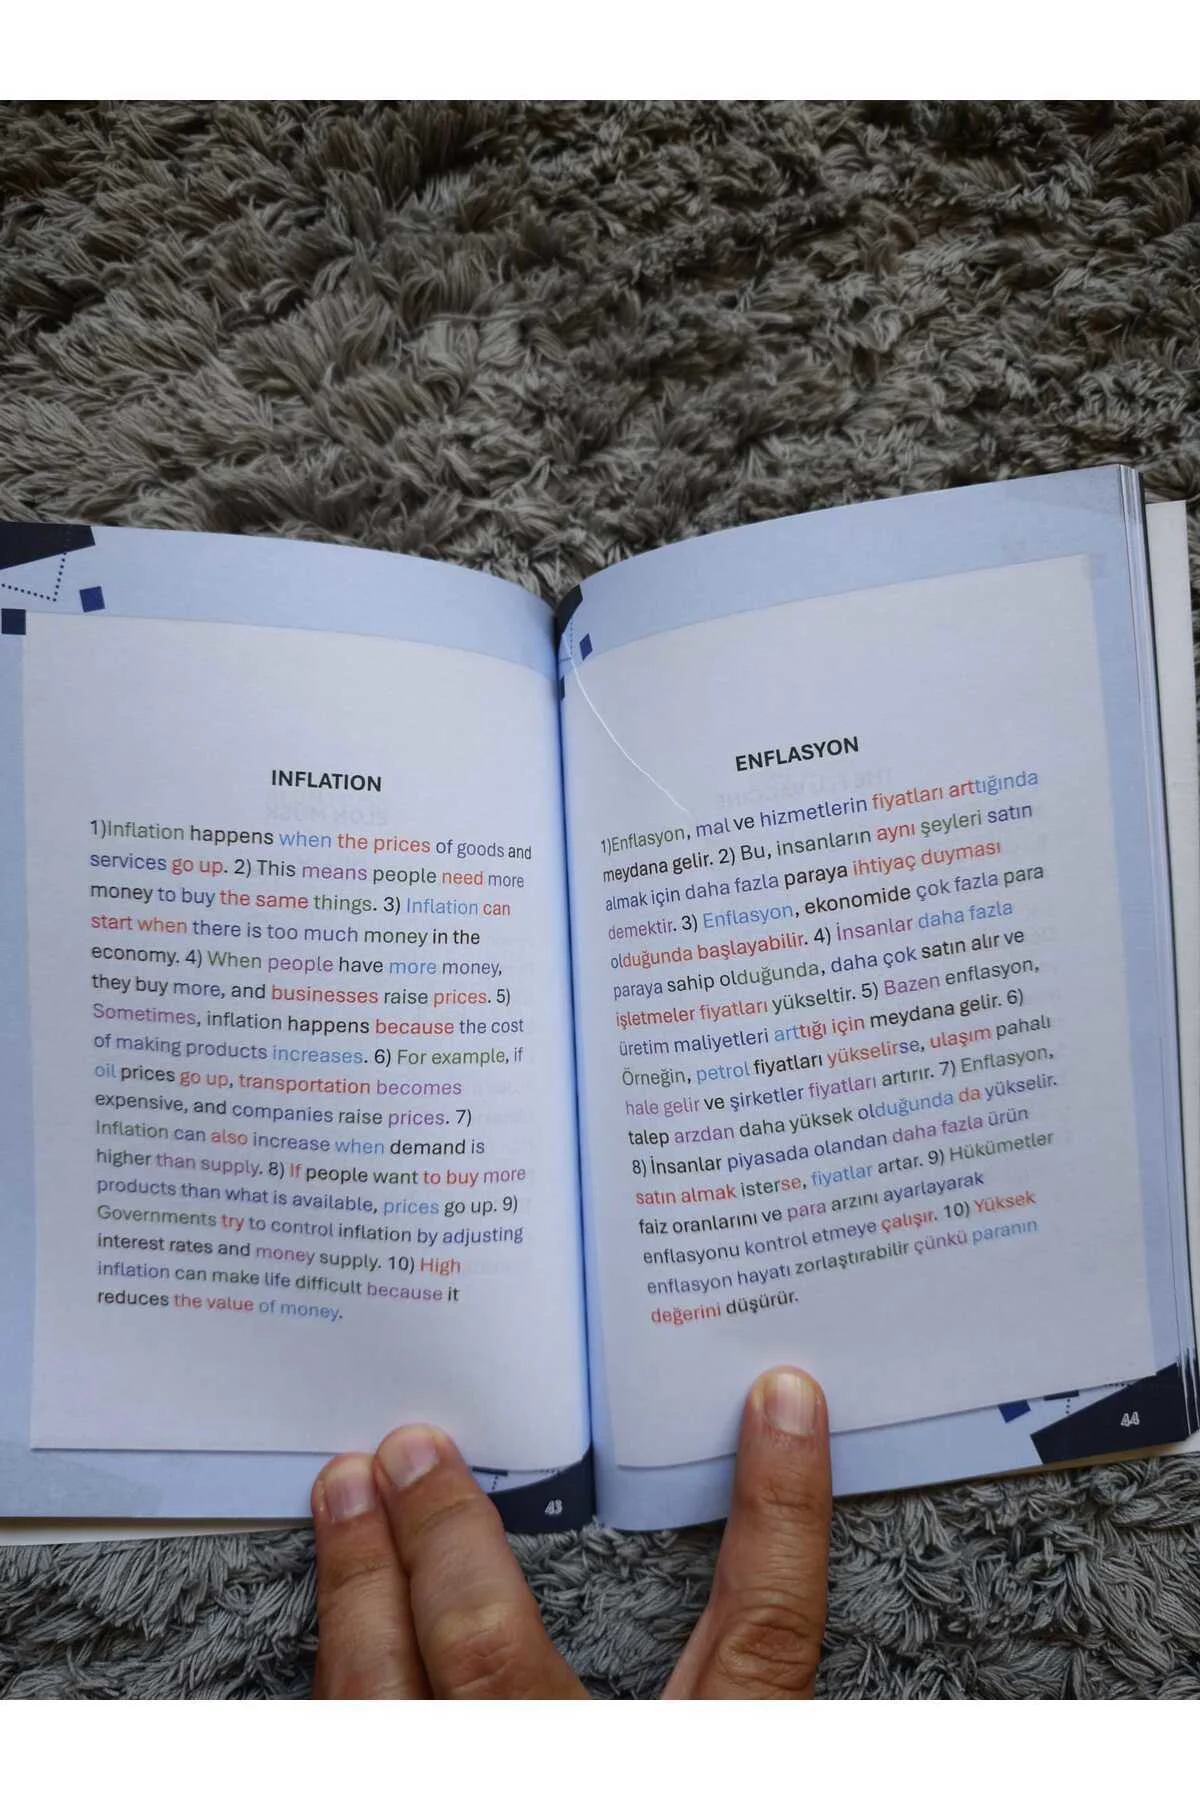 INFLATION
1)Inflation happens when the prices of goods and
services go up. 2) This means people need more
money to buy the same things. 3) Inflation can
start when there is too much money in the
economy. 4) When people have more money,
they buy more, and businesses raise prices. 5)
Sometimes, inflation happens because the cost
of making products increases. 6) For example, if
oil prices go up, transportation becomes
expensive, and companies raise prices. 7)
Inflation can also increase when demand is
higher than supply. 8) If people want to buy more
products than what is available, prices go up. 9)
Governments try to control inflation by adjusting
interest rates and money supply. 10) High
inflation can make life difficult because it
reduces the value of money.
43
ENFLASYON
1)Enflasyon, mal ve hizmetlerin fiyatları arttığında
meydana gelir. 2) Bu, insanların aynı şeyleri satın
almak için daha fazla paraya ihtiyaç duyması
demektir. 3) Enflasyon, ekonomide çok fazla para
olduğunda başlayabilir. 4) İnsanlar daha fazla
paraya sahip olduğunda, daha çok satın alır ve
işletmeler fiyatları yükseltir. 5) Bazen enflasyon,
üretim maliyetleri arttığı için meydana gelir. 6)
Örneğin, petrol fiyatları yükselirse, ulaşım pahalı
hale gelir ve şirketler fiyatları artırır. 7) Enflasyon,
talep arzdan daha yüksek olduğunda da yükselir.
8) İnsanlar piyasada olandan daha fazla ürün
satın almak isterse, fiyatlar artar. 9) Hükümetler
faiz oranlarını ve para arzını ayarlayarak
enflasyonu kontrol etmeye çalışır. 10) Yüksek
enflasyon hayatı zorlaştırabilir çünkü paranın
değerini düşürür.
44